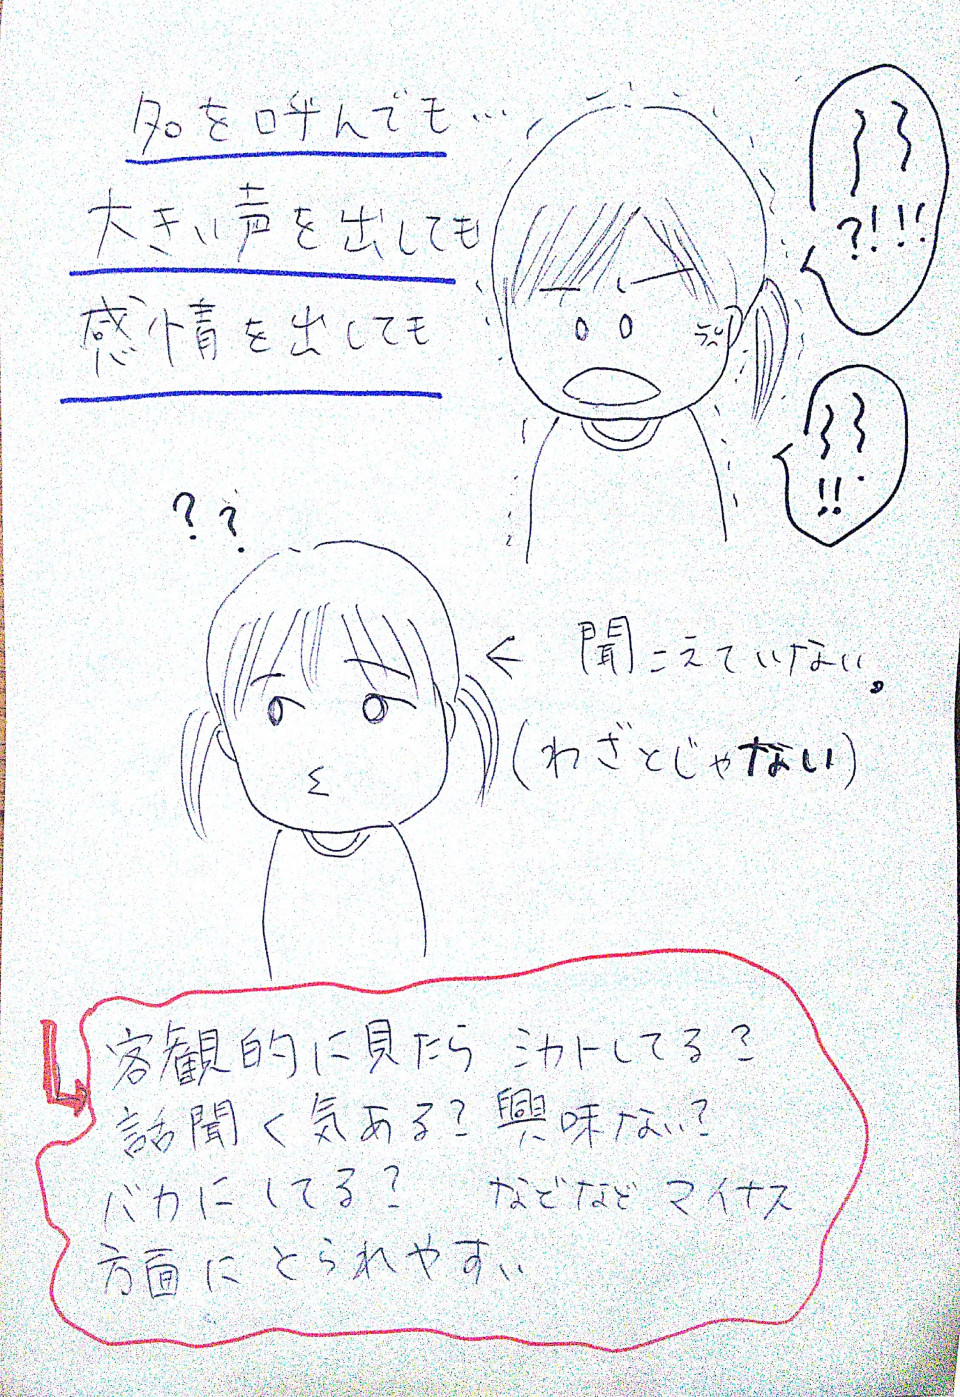 名を呼んでも…
大きい声を出しても
感情を出しても
?!!!
!!
??
← 聞こえていない。
(わざとじゃない)
客観的に見たら シカトしてる?
話聞く気ある?興味ない?
バカにしてる? などなど マイナス
方面に とられやすい